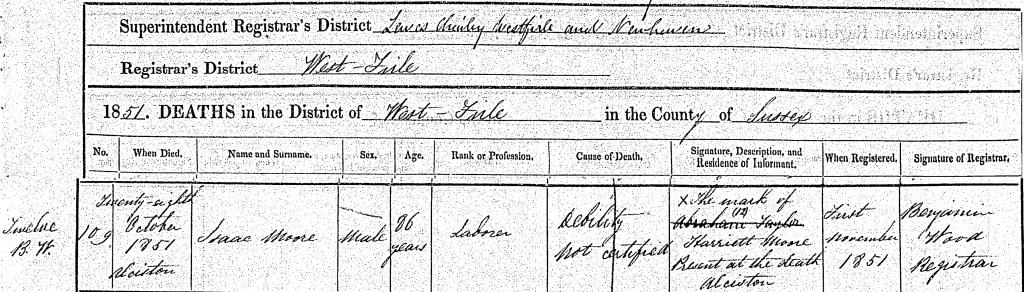 Superintendent Registrar's District Lewes Chailey Westfirle and Newhaven
Registrar's District West-Firle
1851. DEATHS in the District of West-Firle in the County of Sussex
No. When Died. Name and Surname. Sex. Age. Rank or Profession. Cause of Death. Signature, Description, and Residence of Informant. When Registered. Signature of Registrar.
Twelve
B. W.
109
Twenty-eighth
October
1851
Alciston
Isaac Moore
Male
86
years
Laborer
Debility
Not certified
X The mark of
(12)
Abraham Taylor
Harriett Moore
Present at the death
Alciston
First
November
1851
Benjamin
Wood
Registrar